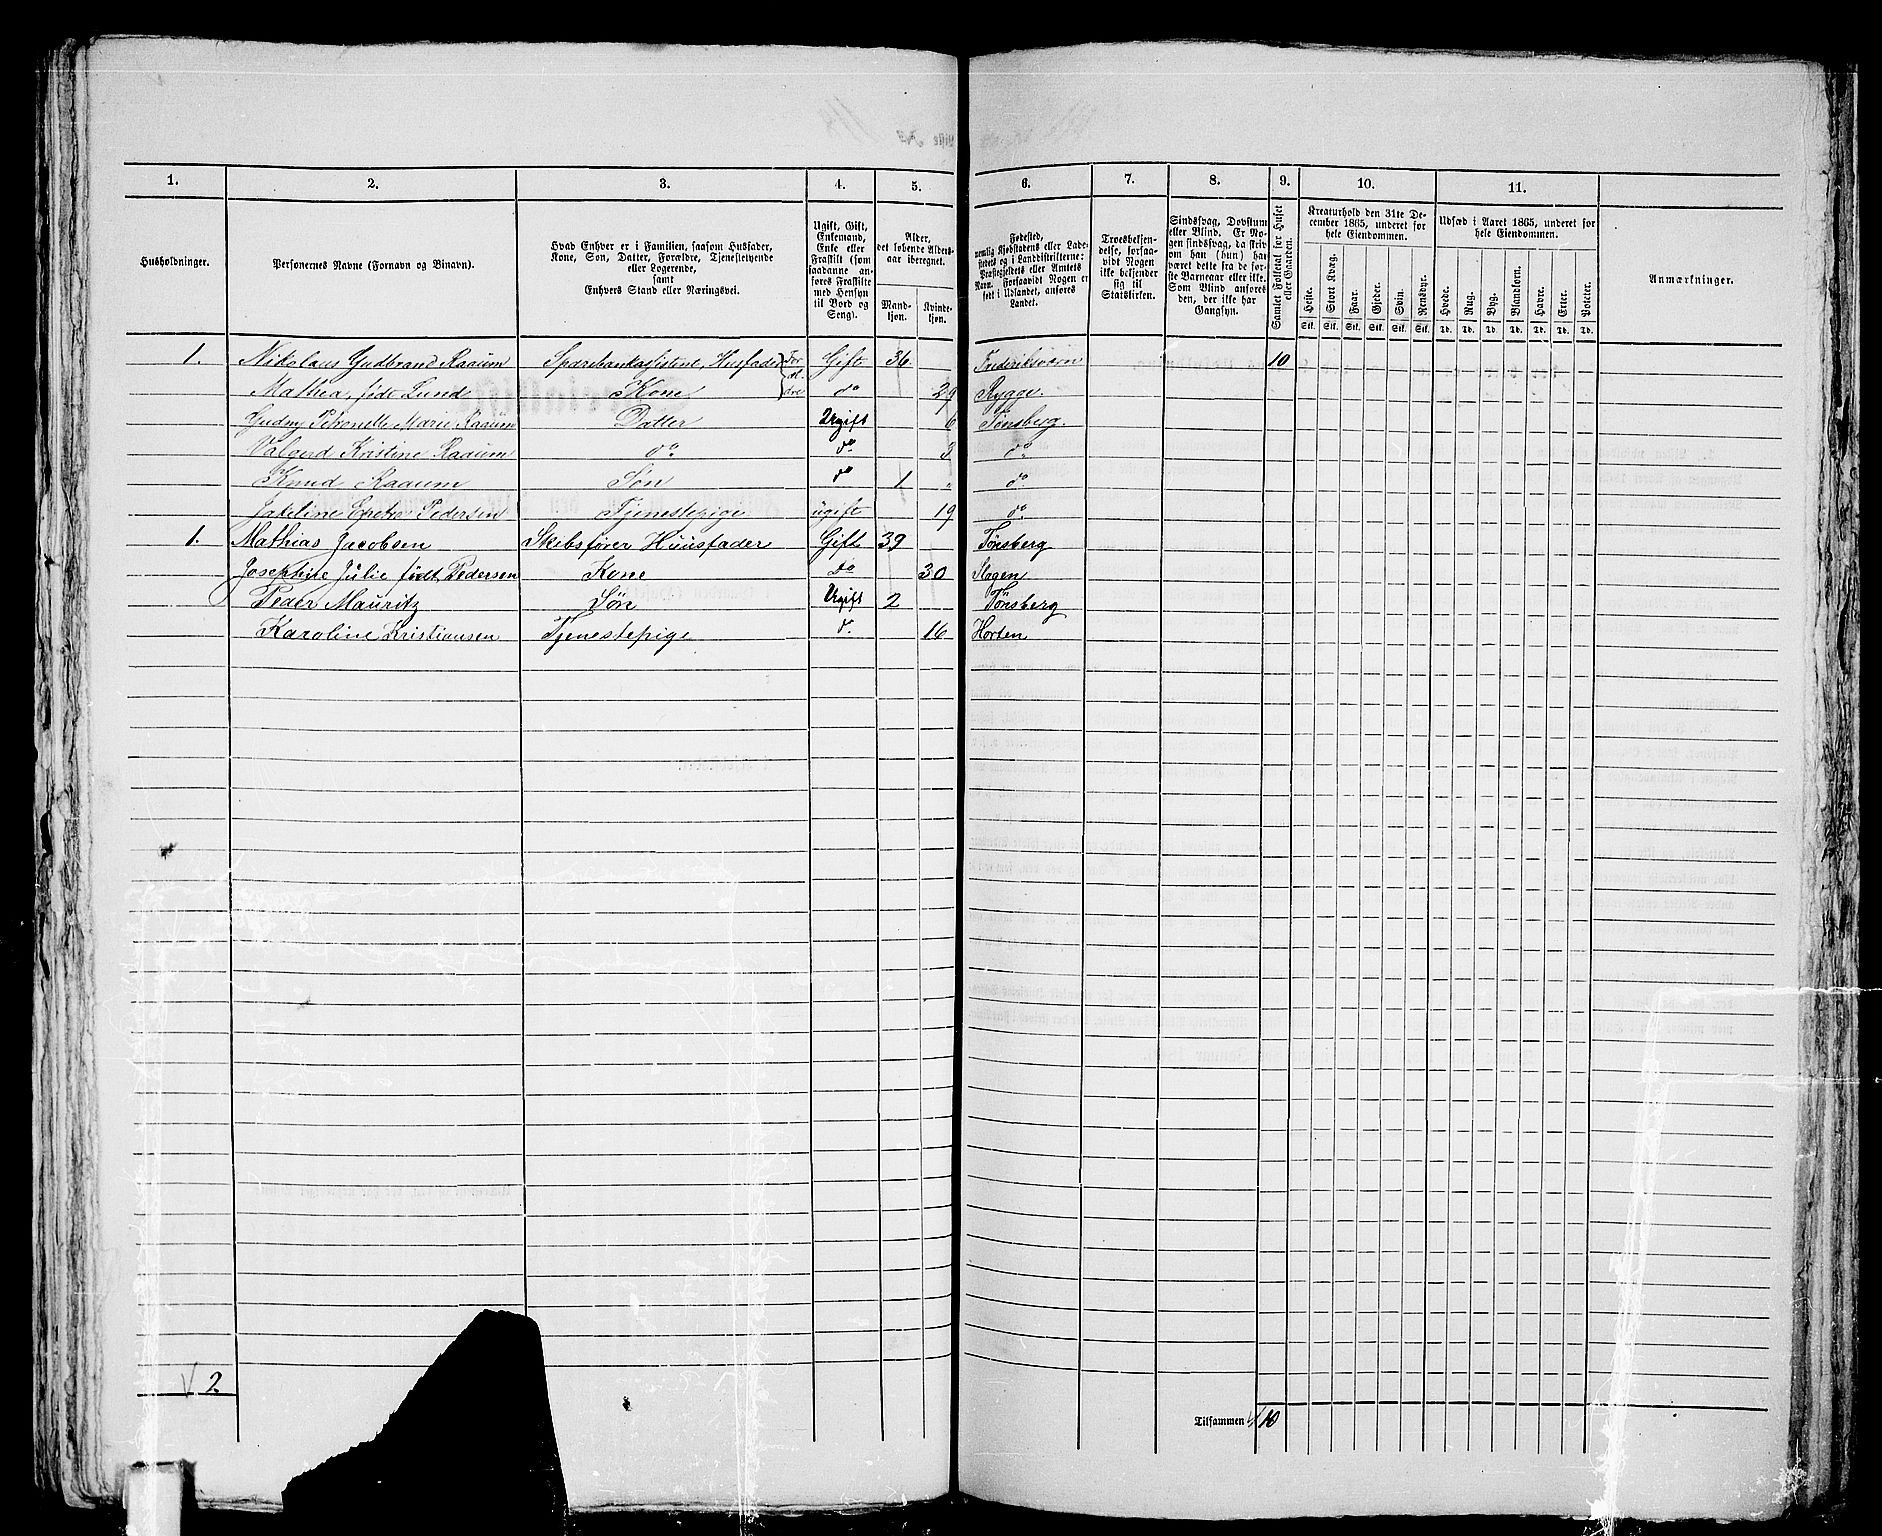 1. 2. 3. 4. 5. 6. 7. 8. 9. 10. 11.
Husholdninger.
Personernes Navne (Fornavn og Binavn).
Hvad Enhver er i Familien, saasom Husfader,
Kone, Søn, Datter, Forældre, Tjenestetyende
eller Logerende,
samt
Enhvers Stand eller Næringsvei.
Ugift, Gift,
Enkemand,
Enke eller
Fraskilt (som
saadanne an-
føres Fraskilte
med Hensyn
til Bord og
Seng).
Alder,
det løbende Alders-
aar iberegnet.
Mand-
kjøn.
Kvinde-
kjøn.
Fødested,
nemlig Kjøbstadens eller Lade-
stedets og i Landdistrikterne:
Præstegjeldets eller Amtets
Navn. Forsaavidt Nogen er
født i Udlandet, anføres
Landet.
Troesbekjen-
delse, forsaa-
vidt Nogen
ikke bekjender
sig til
Statskirken.
Sindssvag, Døvstum
eller Blind. Er No-
gen sindssvag, da skriv
om han (hun) har
været dette fra de før-
ste Barneaar eller ikke.
Som Blind anføres
den, der ikke har
Gangsyn.
Samlet Folketal for Huset
eller Gaarden.
Kreaturhold den 31te De-
cember 1865, underet for
hele Eiendommen.
Heste. Stort Kvæg. Faar. Gjeder. Svin. Rensdyr.
Stk. Stk. Stk. Stk. Stk. Stk.
Udsæd i Aaret 1865, underet for
hele Eiendommen.
Hvede. Rug. Byg. Blandkorn. Havre. Erter. Poteter.
Td. Td. Td. Td. Td. Td. Td.
Anmærkninger.
1. Nikolaus Gudbrand Raaum Sparebankassistent, Husfader Gift 36 Frederiksværn 10
Mathea, født Lund Kone do 29 Rygge.
Gudny Petronelle Marie Raaum Datter Ugift 6 Tønsberg.
Valgerd Kristine Raaum do do 3 do
Knud Raaum Søn do 1 " do
Pedersen Tjenestepige ugift 19 do
1. Mathias Jacobsen Skibsfører Huusfader Gift 39 Tønsberg
Josephine Julie født Pedersen Kone do 30 Slagen
Peder Mauritz Søn Ugift 2 Tønsberg
Karoline Kristiansen Tjenestepige do 16 Horten
2
Tilsammen 10